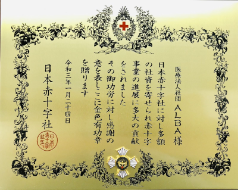 医療法人社団 ALBA 様
日本赤十字社に対し多額
の社資を寄せられ赤十字
事業の進展に多大の貢献
をされました
その御功労に対し感謝の
意を表しここに金色有功章
を贈ります
令和三年一月二十四日
日本赤十字社